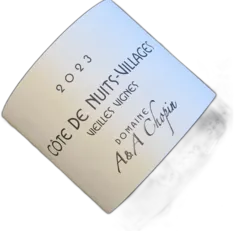 2023
CÔTE DE NUITS-VILLAGES
VIEILLES VIGNES
DOMAINE
A&A Chopin